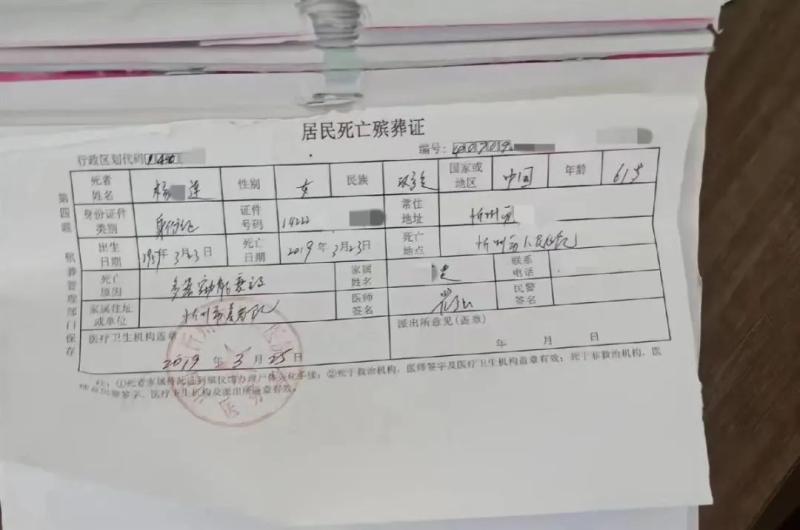 居民死亡殡葬证
行政区划代码 编号:
死者姓名 杨 连 性别 女 民族 汉 国家或地区 中国 年龄 61岁
身份证件类别 身份证 证件号码 14222 常住地址 忻州
出生日期 1957年3月23日 死亡日期 2019年3月23日 死亡地点 忻州市人民医院
死亡原因 多器 家属姓名 联系电话
家属住址或单位 忻州市 医师签名 民警签名
医疗卫生机构盖章 派出所意见(盖章)
2019年3月25日 年 月 日
注:①死者家属持此证到殡仪馆办理尸体火化手续;②死于救治机构,医师签字及医疗卫生机构盖章有效;死于非救治机构,医
师签字、医疗卫生机构及派出所盖章有效。
第四联
殡葬管理部门保存